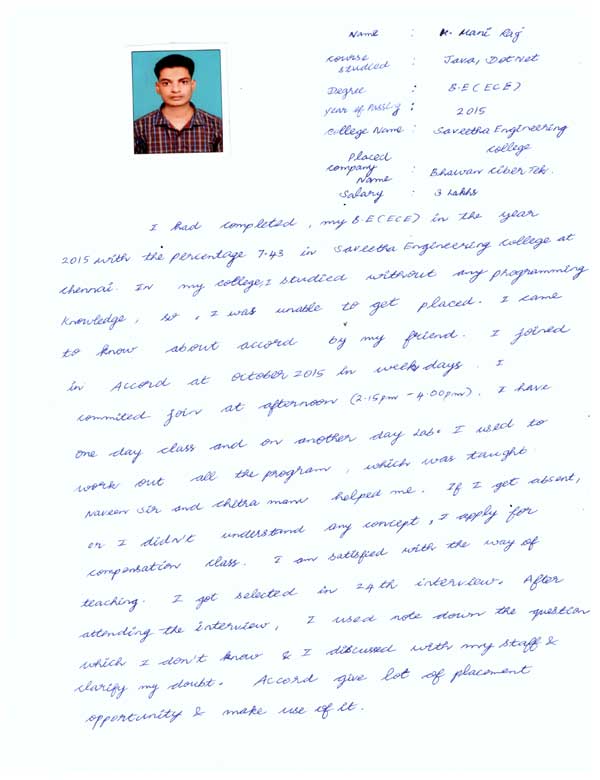 Name : M. Mani Raj
Course studied : Java, DotNet
Degree : B.E (ECE)
Year of Passig : 2015
College Name : Saveetha Engineering College
Placed company Name : Bhawan Ciber Tek.
Salary : 3 Lakhs
I had completed, my B.E (ECE) in the year
2015 with the percentage 7.43 in Saveetha Engineering College at
chennai. In my college, I studied without any programming
knowledge, so, I was unable to get placed. I came
to know about accord by my friend. I joined
in Accord at October 2015 in week days. I
commited join at afternoon (2.15pm - 4.00pm). I have
one day class and on another day Lab. I used to
work out all the program, which was taught.
Naveen Sir and chitra mam helped me. If I get absent,
or I didn't understand any concept, I apply for
compensation class. I am satisfied with the way of
teaching. I got selected in 24th interview. After
attending the interview, I used note down the question
which I don't know & I discussed with my staff &
clarify my doubt. Accord give lot of placement
opportunity & make use of it.